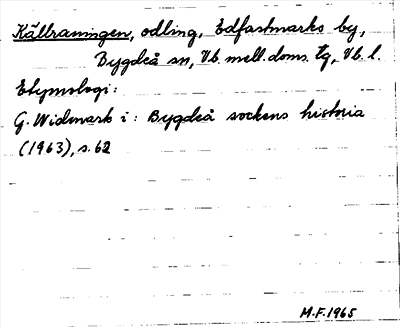 Källramningen, odling, Edfastmarks by,
Bygdeå sn, Vb. mell. doms. tg, Vb. l.
Etymologi:
G. Widmark i: Bygdeå sockens historia
(1963), s. 62
M.F. 1965